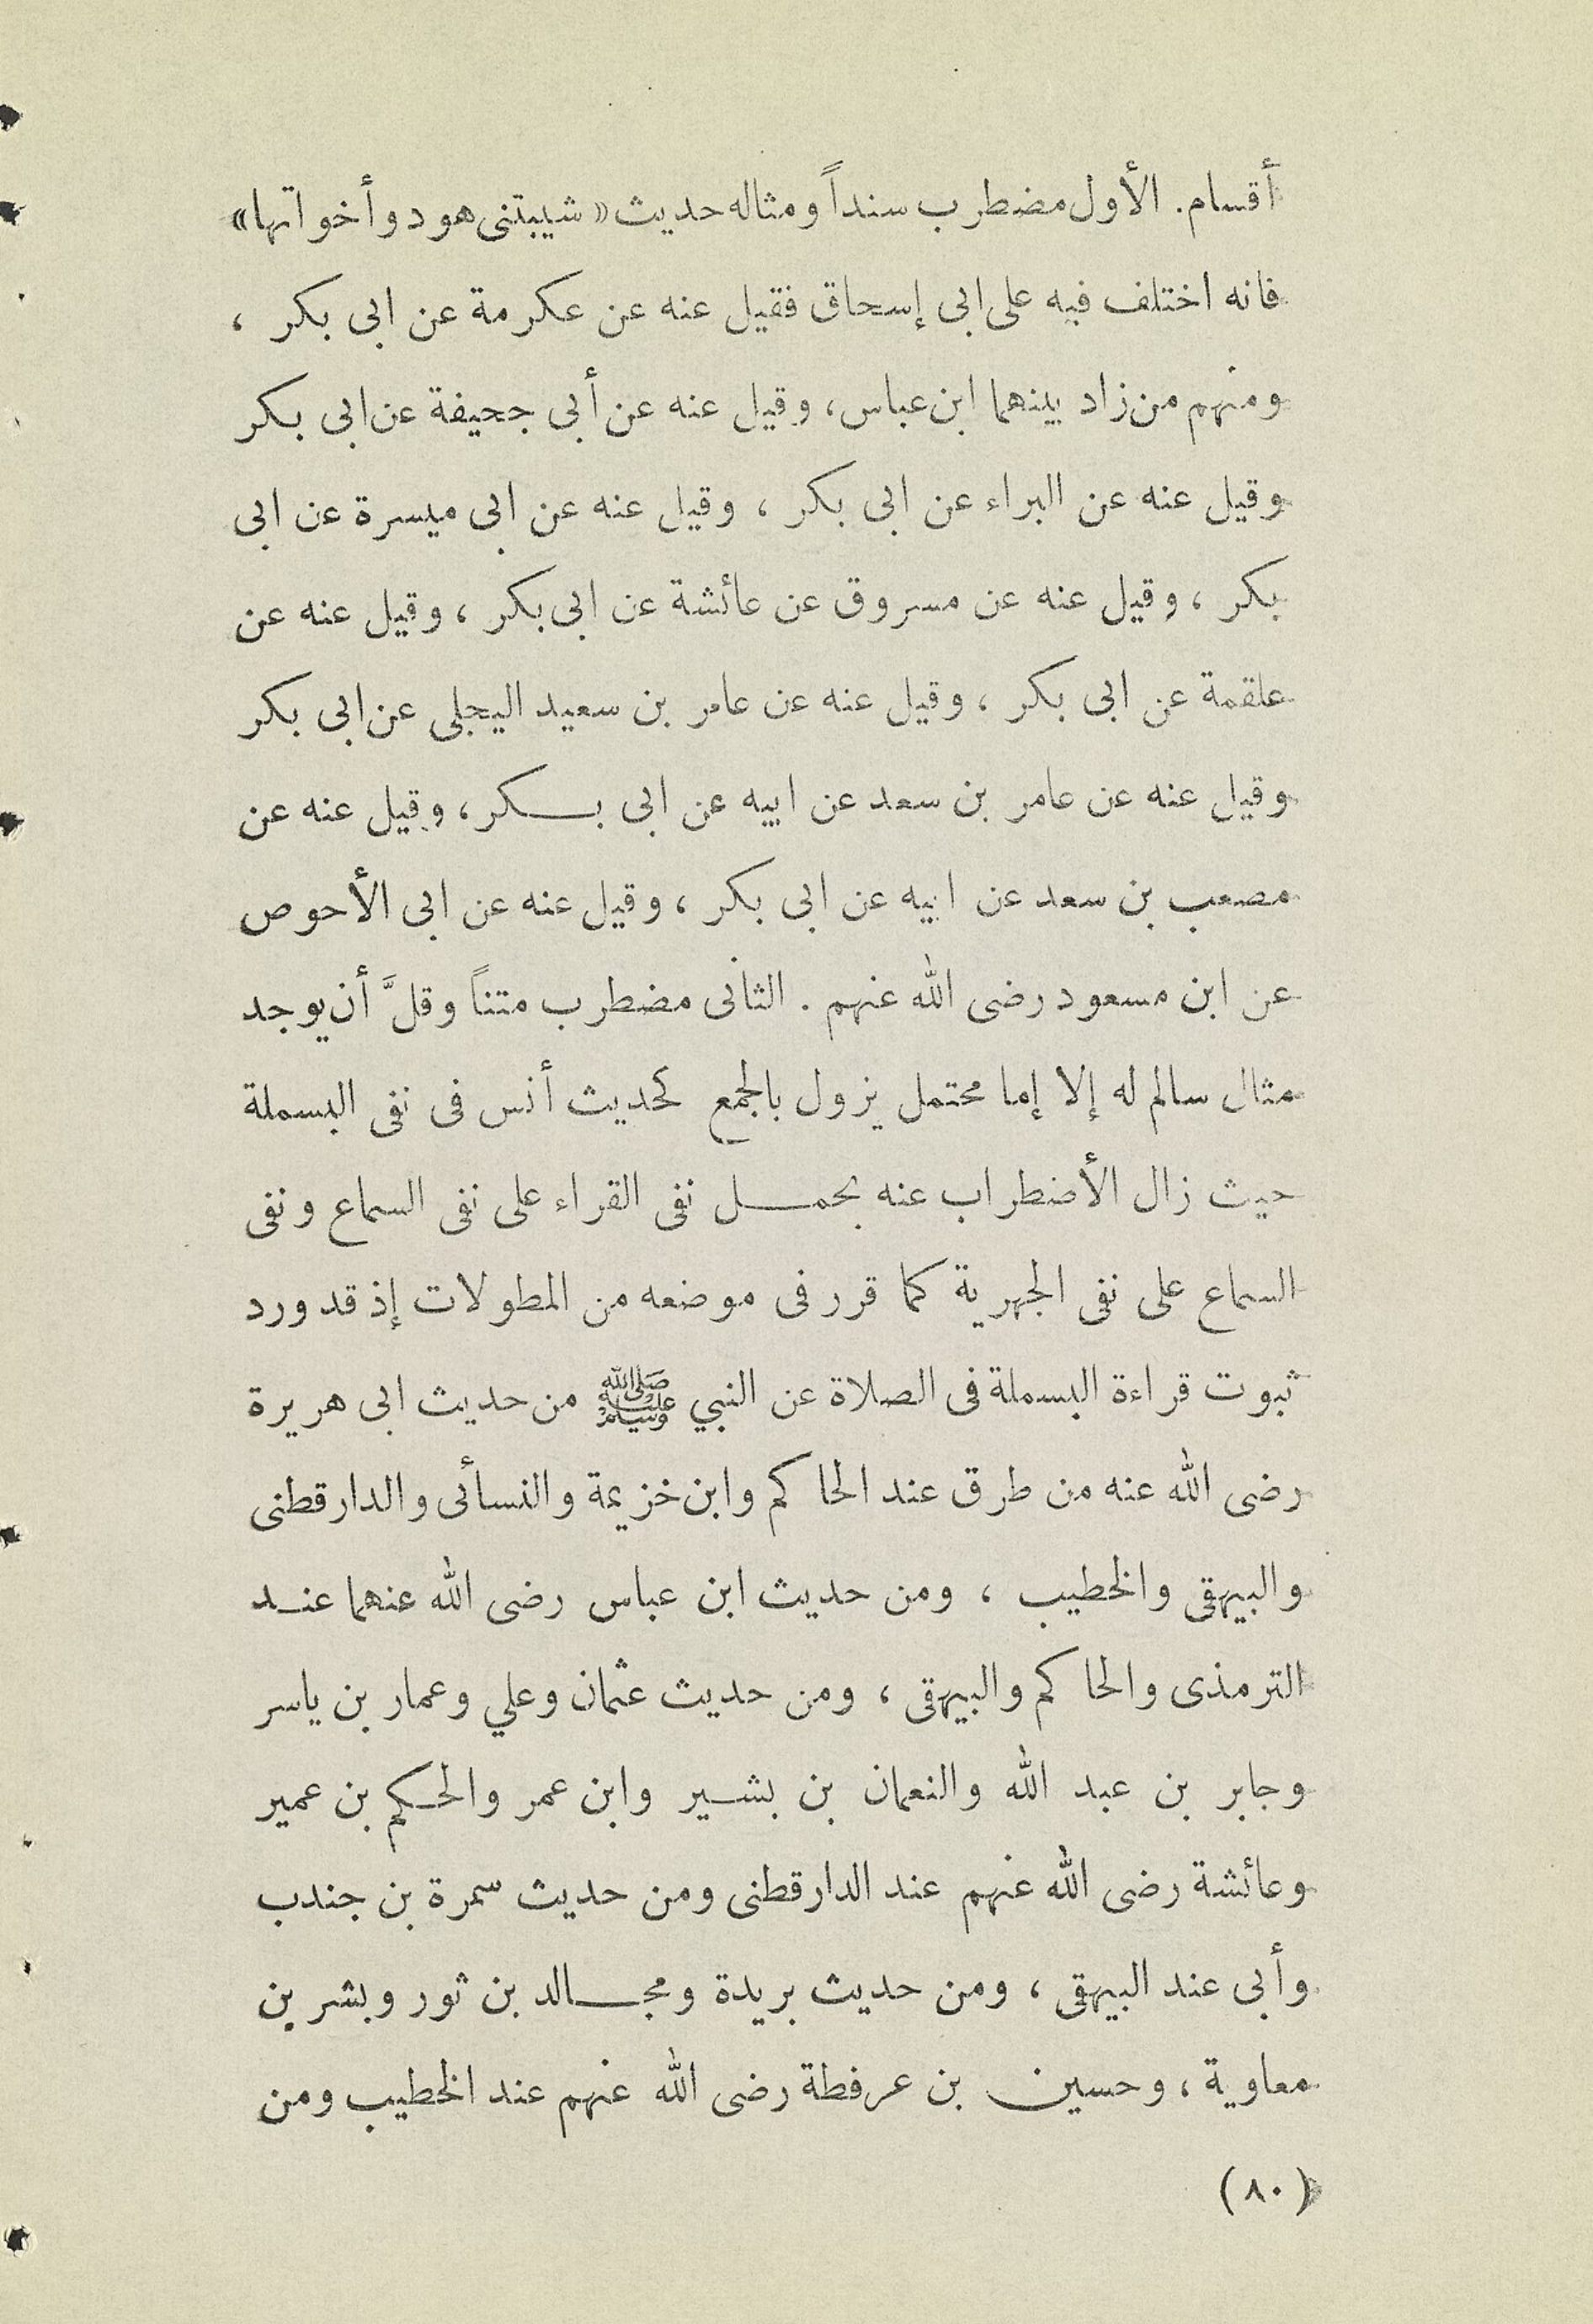 أقسام. الأول مضطرب سنداً ومثاله حديث «شيبتنى هود وأخواتها»
فانه اختلف فيه على ابى إسحاق فقيل عنه عن عكرمة عن ابى بكر ،
ومنهم من زاد بينهما ابن عباس، وقيل عنه عن أبى جحيفة عن ابى بكر
وقيل عنه عن البراء عن ابى بكر ، وقيل عنه عن ابى ميسرة عن ابى
بكر ، وقيل عنه عن مسروق عن عائشة عن ابى بكر ، وقيل عنه عن
علقمة عن ابى بكر ، وقيل عنه عن عامر بن سعيد البجلى عن ابى بكر
وقيل عنه عن عامر بن سعد عن ابيه عن ابى بكر، وقيل عنه عن
مصعب بن سعد عن ابيه عن ابى بكر ، وقيل عنه عن ابى الأحوص
عن ابن مسعود رضى الله عنهم . الثانى مضطرب متناً وقلَّ أن يوجد
مثال سالم له إلا إما محتمل يزول بالجمع كحديث أنس فى نفى البسملة
حيث زال الأضطراب عنه بحمل نفى القراء على نفى السماع ونفى
السماع على نفى الجهرية كما قرر فى موضعه من المطولات إذ قد ورد
ثبوت قراءة البسملة فى الصلاة عن النبي ﷺ من حديث ابى هريرة
رضى الله عنه من طرق عند الحاكم وابن خزيمة والنسأئى والدارقطنى
والبيهقى والخطيب ، ومن حديث ابن عباس رضى الله عنهما عند
الترمذى والحاكم والبيهقى ، ومن حديث عثمان وعلي وعمار بن ياسر
وجابر بن عبد الله والنعمان بن بشير وابن عمر والحكم بن عمير
وعائشة رضى الله عنهم عند الدارقطنى ومن حديث سمرة بن جندب
وأبى عند البيهقى ، ومن حديث بريدة ومجالد بن ثور وبشر بن
معاوية ، وحسين بن عرفطة رضى الله عنهم عند الخطيب ومن
(٨٠)